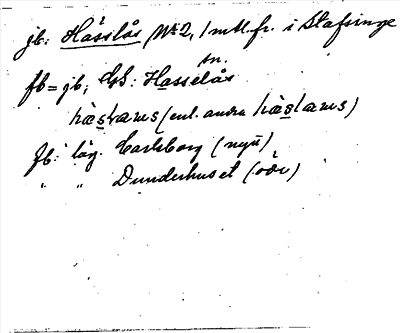 jb: Hässlås No 2, 1 mtl. fr. i Stafsinge
fb = jb; GS: Hasselås
sn.
hæslaws (enl. andra hæslaws)
fb: läg. Carlsborg (nyü)
" " Dunderhuset (öde)